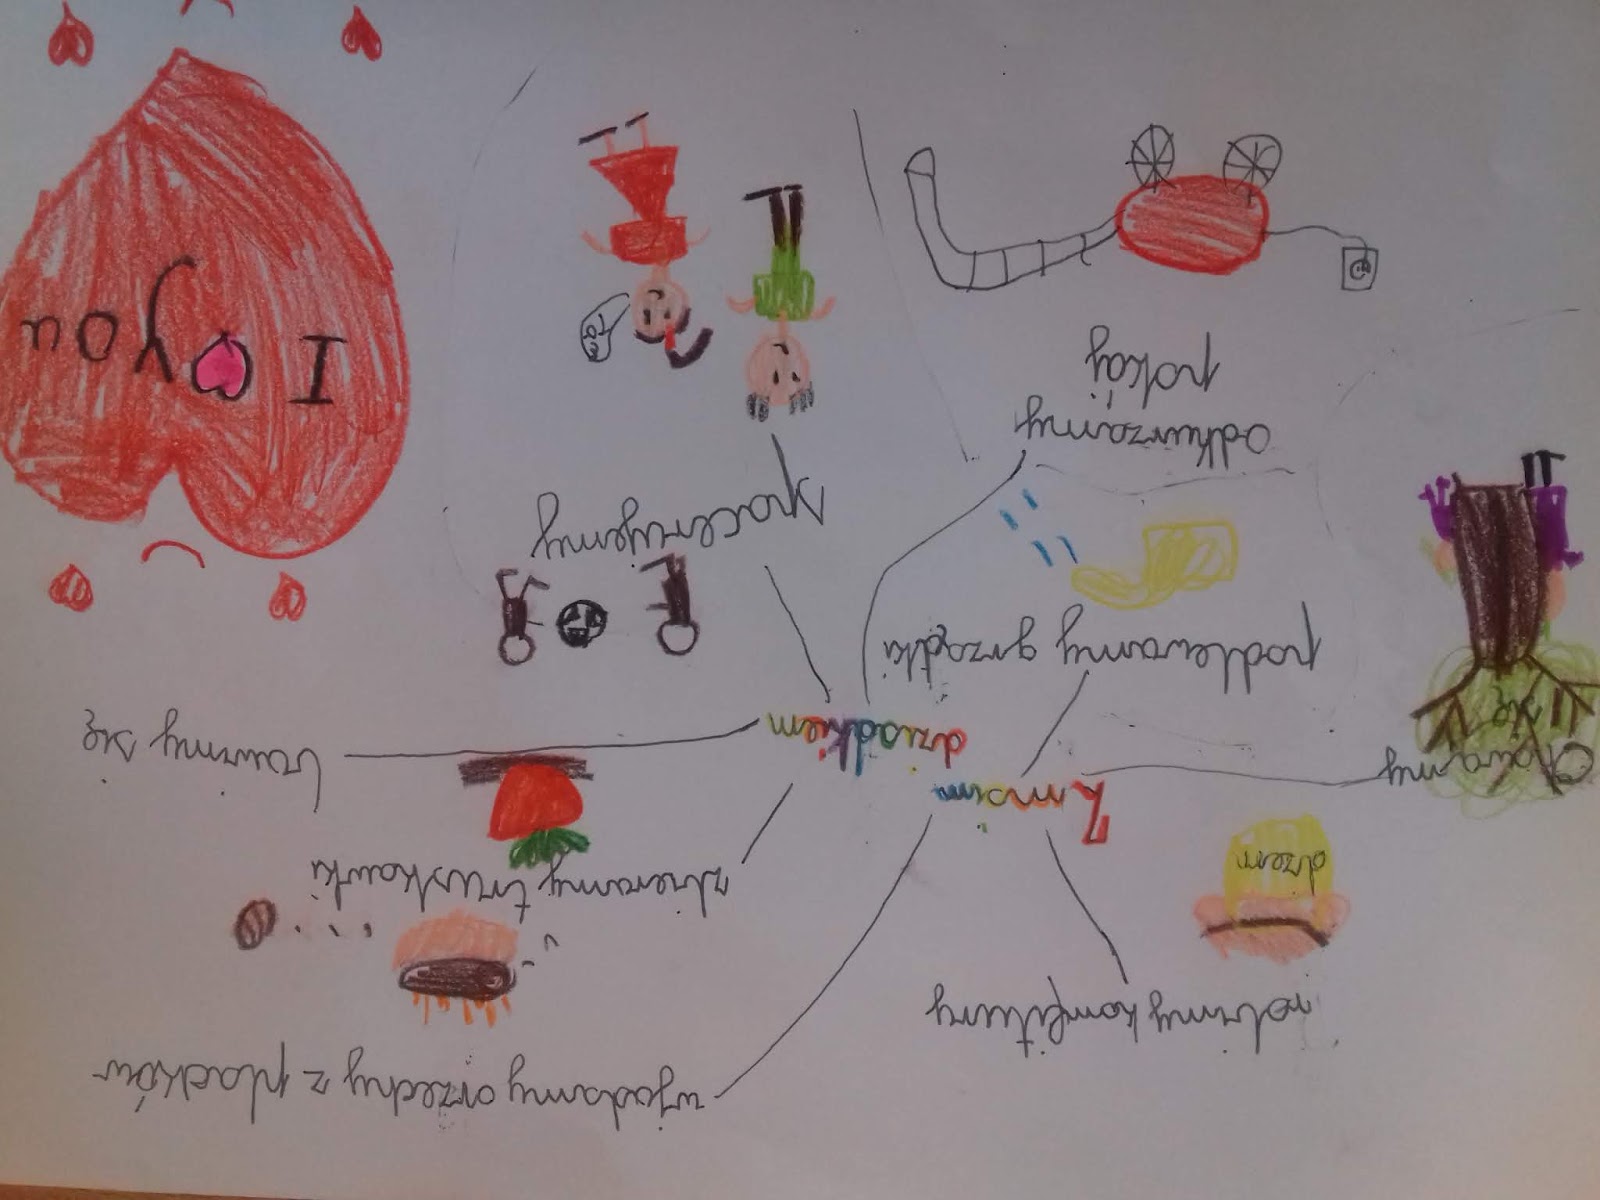 wyjadamy orzechy z placków
robimy komfitury
zbieramy truskawki
dżem
Z moim
dziadkiem
bawimy się
Chowamy
się
podlewamy grządki
spacerujemy
odkurzamy
pokój
I you